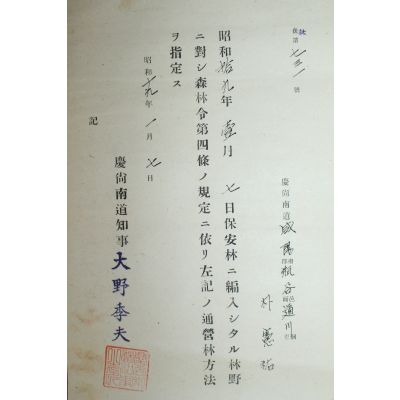 第七三一號
慶尙南道咸陽郡瓶谷面道川里
朴憲祐
昭和拾九年壹月七日保安林ニ編入シタル林野
ニ對シ森林令第四條ノ規定ニ依リ左記ノ通營林方法
ヲ指定ス
昭和十九年一月七日
慶尙南道知事大野季夫
記